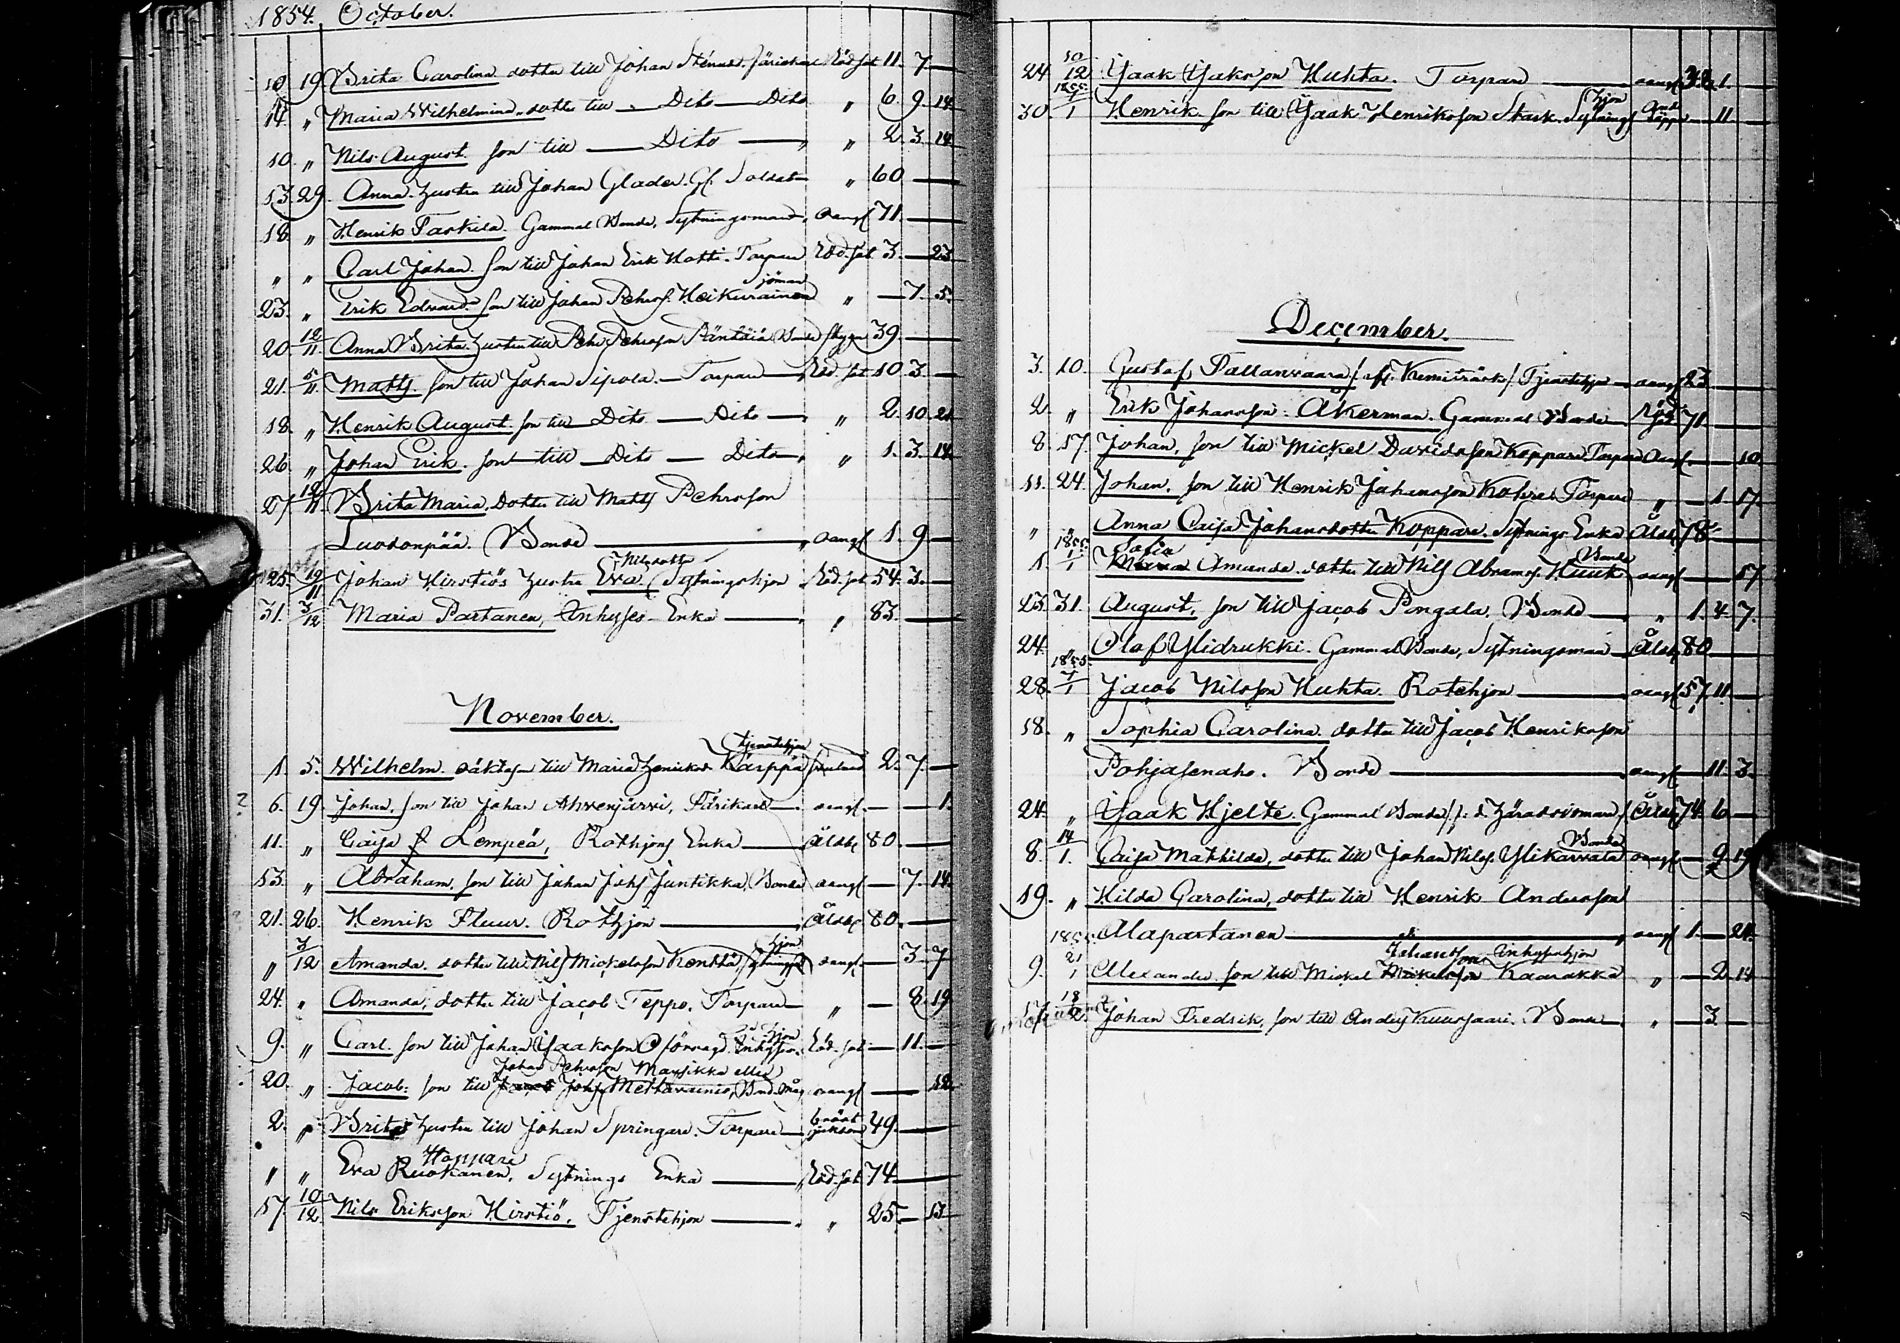 1854. October.
10. 19. Brita Carolina dotter till Johan Sténius. färikarl Röd.sot 11. 7.
14. " Maria Wilhelmina. dotter till " Dito Dito " 6. 9. 14.
10. " Nils August. son till Dito " 2. 3. 14.
13. 29. Anna. hustru till Johan Glader. Gl. Soldat " 60
18. " Henrik Taskila. Gammal Bonde, Sytningsman. oangf 71.
" " Carl Johan. son till Johan Erik Matti. Torpare Röd.sot 3. 23
Sjöman
23. " Erik Edvard. son till Johan Pehrss. Heikurainen " 7. 5.
20. 12/11. Anna Brita hustru till Pehr Pehrsson Bonde 39.
21. 5/11. Matts son till Johan Sipola. Torpare Röd.sot 10 3.
18. " Henrik August. son till Dito Dito " 2. 10. 21
26. " Johan Erik. son till Dito Dito " 1. 3. 14.
27. 12/11 Brita Maria. Dotter till Matts Pehrsson
Luosonpää. Bonde oangf 1. 9.
Nilsdotter
25. 19/11 Johan Hirstiös hustru Eva. Sytningshjon Röd.sot 54. 3.
31. 3/12 Maria Partanen, Inhyses Enka " 83.
November.
tjenstehjon
1. 5. Wilhelm. oäkta son till Maria Henriksd. Karppa 2. 7.
6. 19. Johan. son till Johan Ahvenjärvi, Färikarl oangf. 1.
11. " Caisa Lempeä, Rothjons Enka Åldb 80.
13. " Abraham. son till Johan Johss Juntikka, Bonde oangf 7. 14.
21. 26. Henrik Fluur. Rothjon Åldb 80.
hjon
" 3/12 Amanda. dotter till Nils Mickelsson Kenttä, Sytnings oangf. 3. 7
24. " Amanda, dotter till Jacob Teppo. Torpare " 8. 19
hjon
9. " Carl. son till Johan Isaksson Inhyses Röd.sot 11.
Johan Pehrsson Marsikka eller
20. " Jacob: son till Johss Mettavainio, Bond.måg oangf 12.
2. " Brita hustru till Johan Springare. Torpare 49.
Hoppari
" " Eva Ruokanen. Sytnings Enka Röd.sot 74.
17. 10/12 Nils Eriksson Hirstiö. Tjenstehjon " 25. 13.
24 10/12 Isaak Isaksson Huhta. Torpare oangf 38. 1.
1855. hjon
30. 7/1 Henrik. son till Isaak Henriksson Stark. Sytnings 11
December.
3. 10. Gustaf Pallanvaara / ifr. Kemiträsk / Tjenstehjon oangf 23
2. " Erik Johansson Åkerman. Gammal Bonde Röd sot 71.
8. 17. Johan, son till Mickel Davidsson Koppare Torpare oangf. 10.
11. 24. Johan. son till Henrik Johansson Torpare " 1 17.
" " Anna Caisa Johansdotter Koppare. Sytnings Enka Åldb 78
1855. Sofia Bonde
1. 1/1 Maria Amanda. dotter till Nils Abramss. Huuk oangf 17.
23. 31. August, son till Jacob Pongala. Bonde " 1. 4. 7.
24. " Olaf Ylidrukki. Gammal Bonde, Sytningsman Åldb 80
1855.
28. 7/1 Jacob Nilsson Huhta. Rotehjon oangf 57. 11.
18. " Sophia Carolina. dotter till Jacob Henriksson
Pohjasenaho. Bonde oangf 11. 3.
24. " Isaak Hjelte. Gammal Bonde /: Häradsdomare / Åldb 74. 6.
Bonde
8. 14/1. Caisa Mathilda, dotter till Johan Nilss. Ylikarvala oangf 9. 19
19. " Hilda Carolina, dotter till Henrik Andersson
Alapartanen " oangf 1. 24.
1855. Johansson Inhyseshjon
9. 21/1 Alexander. son till Mickel Mickelsson Kaarakka " 2. 14
17. 18/2. Johan Fredrik, son till Anders Kuusijaari. Bonde " 3.